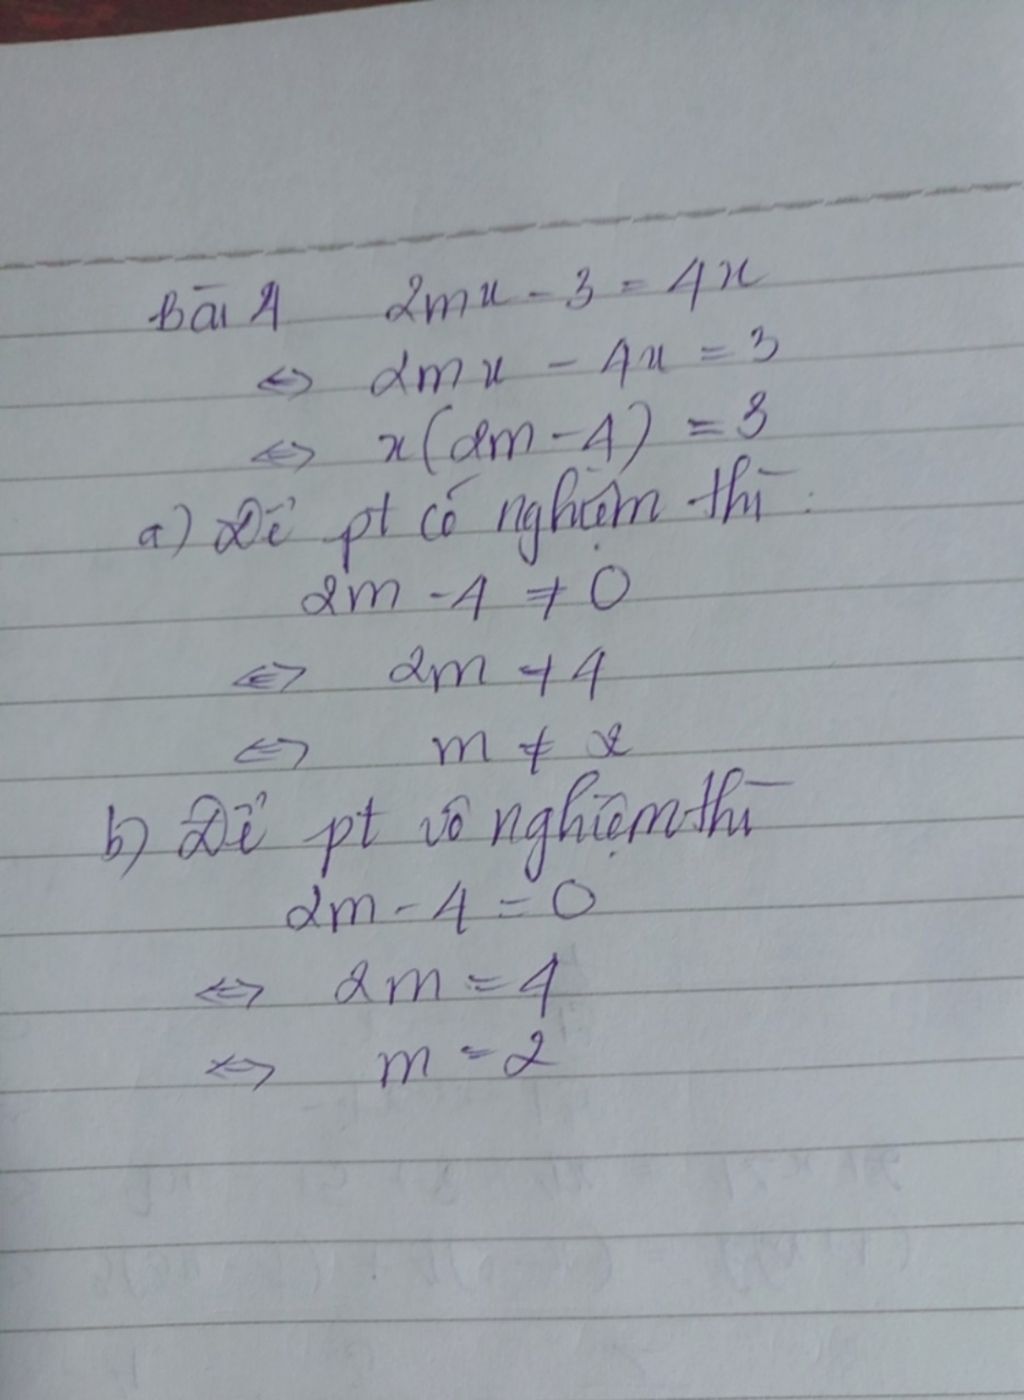 Bài 4 2mx - 3 = 4x
⇔ 2mx - 4x = 3
⇔ x(2m - 4) = 3
a) Để pt có nghiệm thì :
2m - 4 ≠ 0
⇔ 2m ≠ 4
⇔ m ≠ 2
b) Để pt vô nghiệm thì
2m - 4 = 0
⇔ 2m = 4
⇔ m = 2